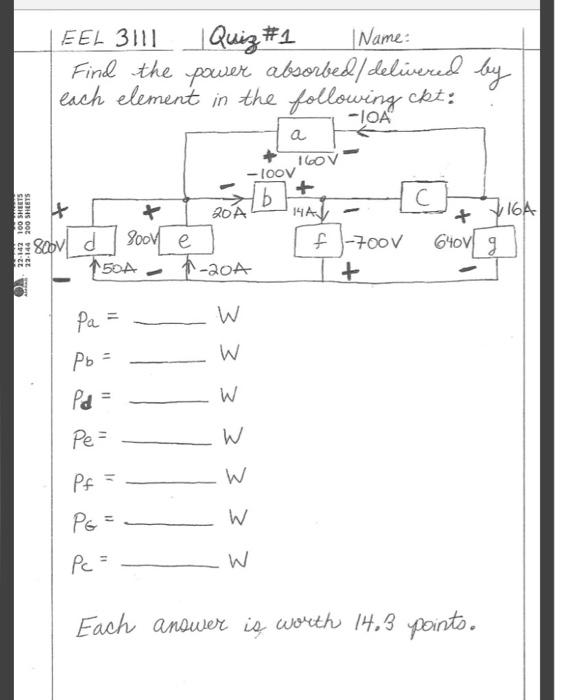 EEL 3111 Quiz #1 Name:
Find the power absorbed/delivered by
each element in the following ckt:
-10A
a
+ 160V -
-100V
- b +
20A 14A - C
+ + + 16A
800V d 800V e f -700V 640V g
- 50A - -20A + -
22-142 100 SHEETS
22-144 200 SHEETS
Pa = ______ W
Pb = ______ W
Pd = ______ W
Pe = ______ W
Pf = ______ W
PG = ______ W
Pc = ______ W
Each answer is worth 14.3 points.